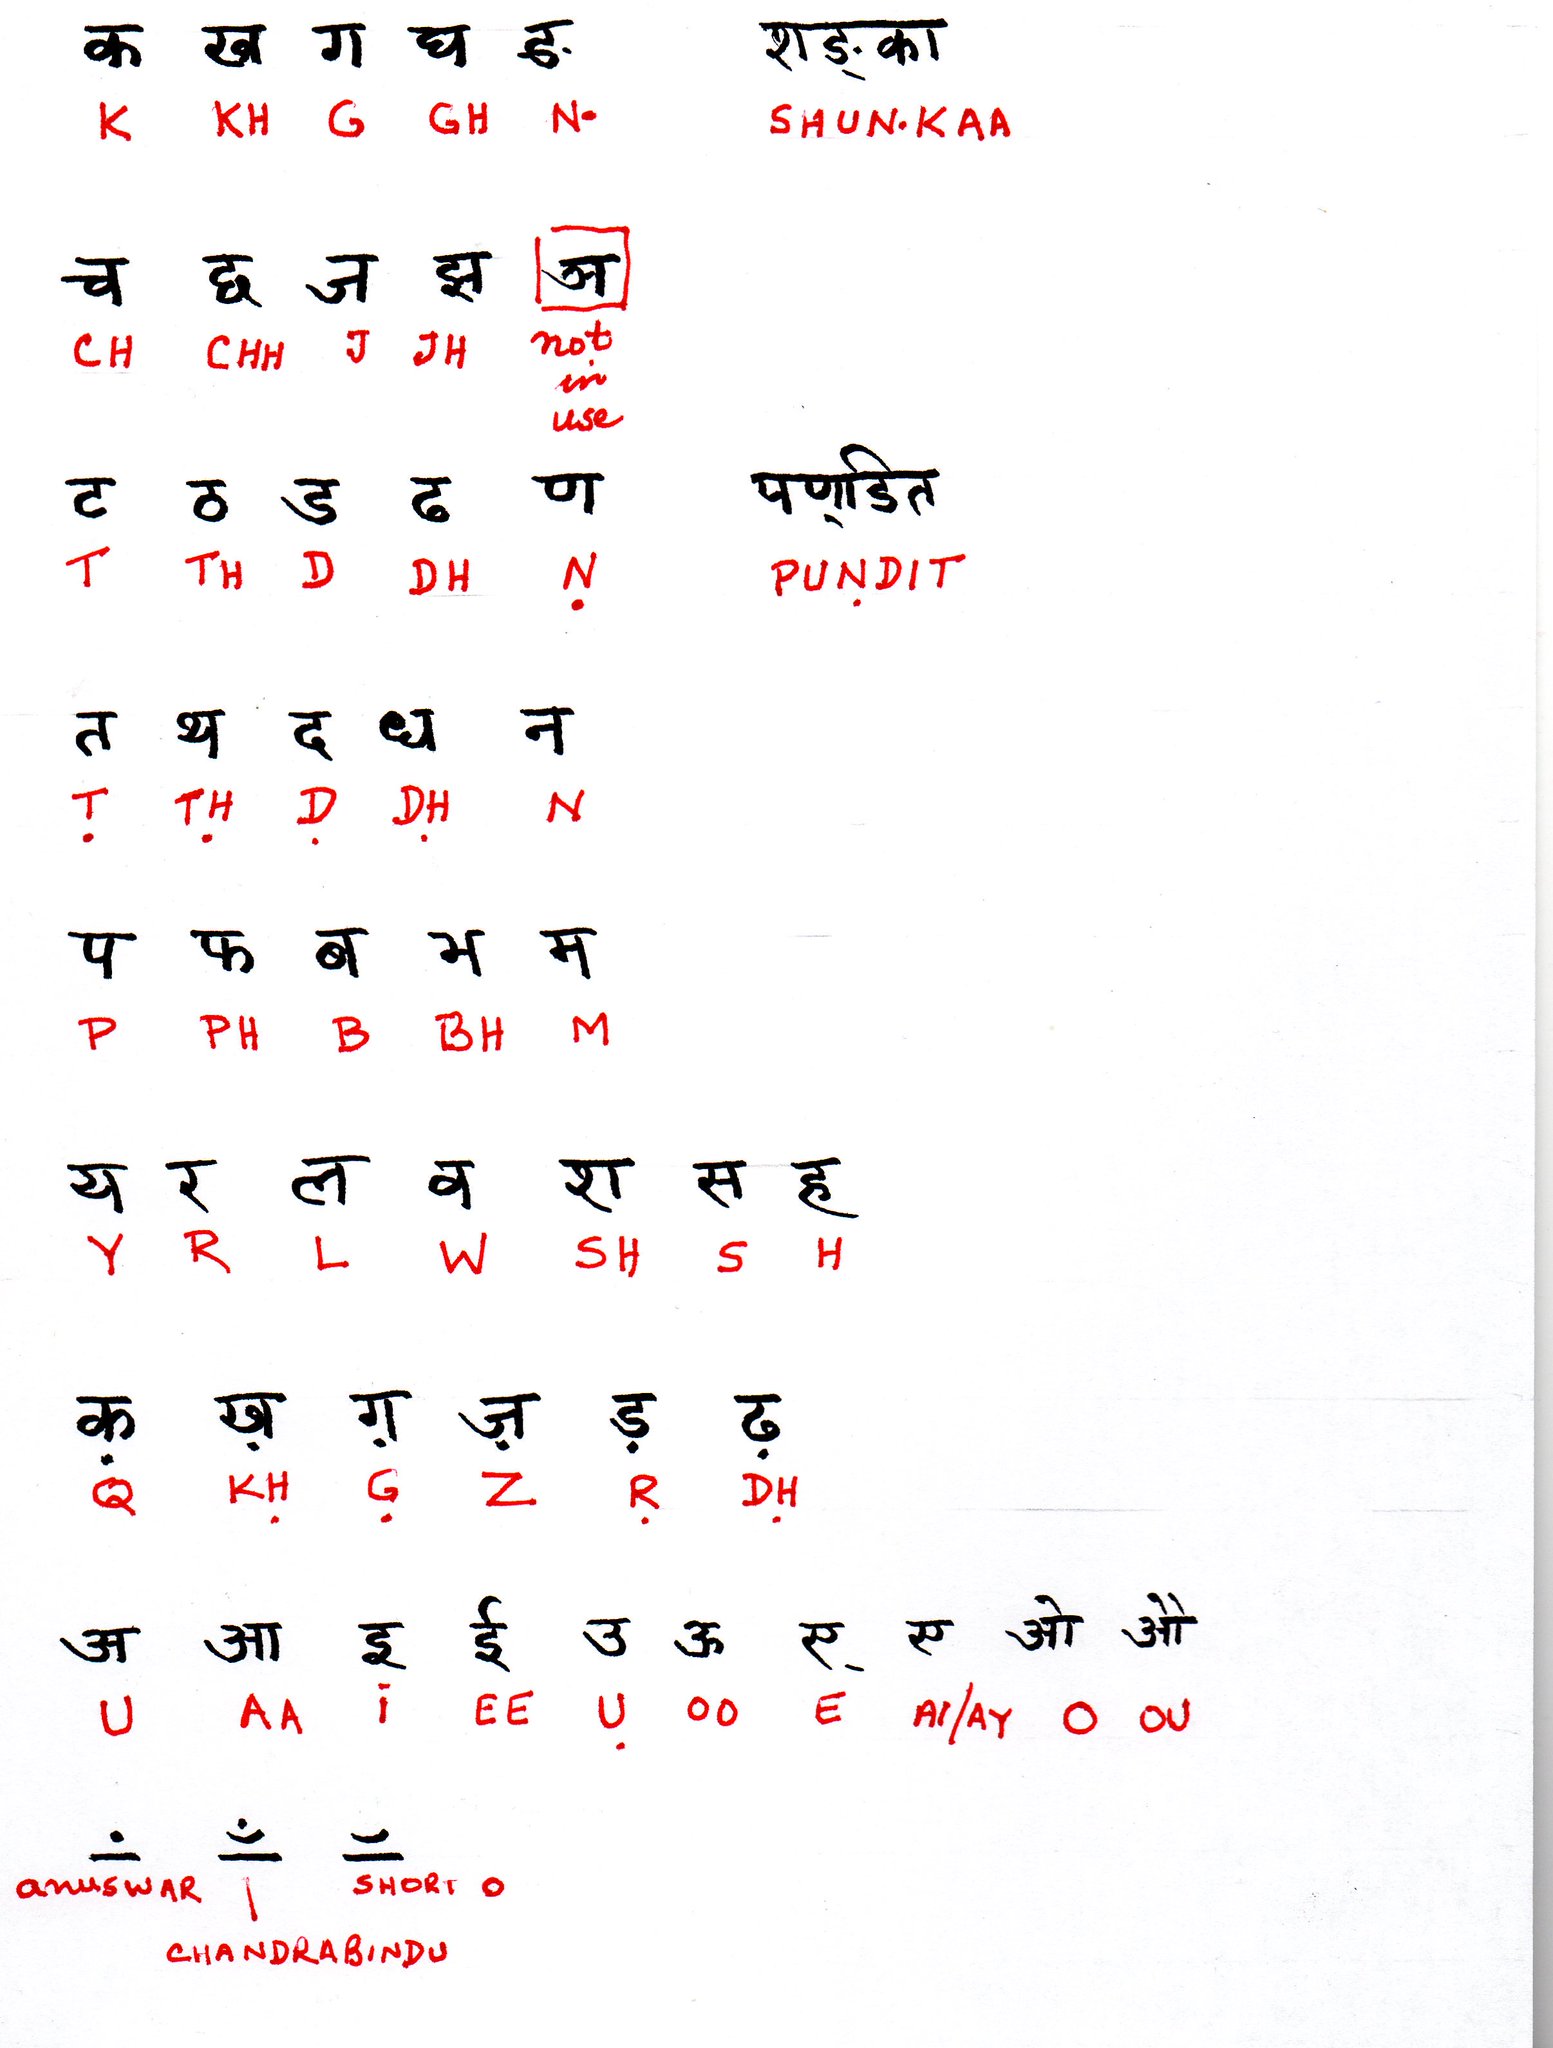 क ख ग घ ङ शङ्का
K KH G GH N· SHUN·KAA
च छ ज झ ञ
CH CHH J JH not
in
use
ट ठ ड ढ ण पण्डित
T TH D DH Ṇ PUṆDIT
त थ द ध न
Ṭ TḤ Ḍ DḤ N
प फ ब भ म
P PH B BH M
य र ल व श स ह
Y R L W SH S H
क़ ख़ ग़ ज़ ड़ ढ़
Q KḤ G̣ Z Ṛ DḤ
अ आ इ ई उ ऊ ए् ए ओ औ
U AA i EE Ụ OO E AI/AY O OU
ं ँ ॅ
anuswar SHORT O
CHANDRABINDU